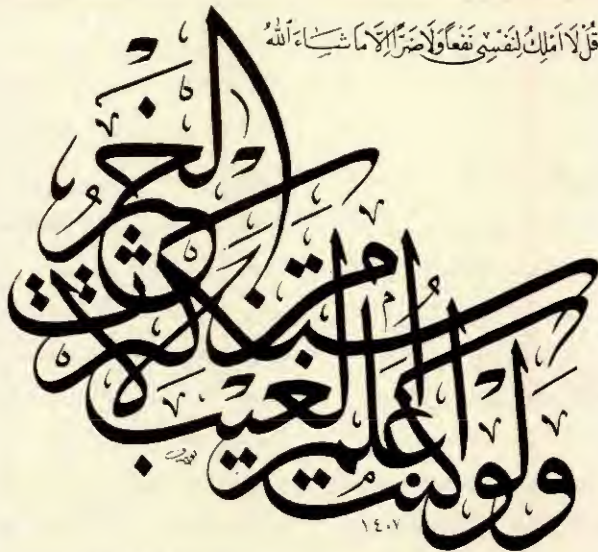 قُلْ لَا اَمْلِكُ لِنَفْسِى نَفْعًا وَلَا ضَرًّا اِلَّا مَا شَاءَ ٱللّٰهُ
وَلَوْ كُنْتُ اَعْلَمُ الْغَيْبَ لَاسْتَكْثَرْتُ مِنَ الْخَيْرِ
١٤٠٧